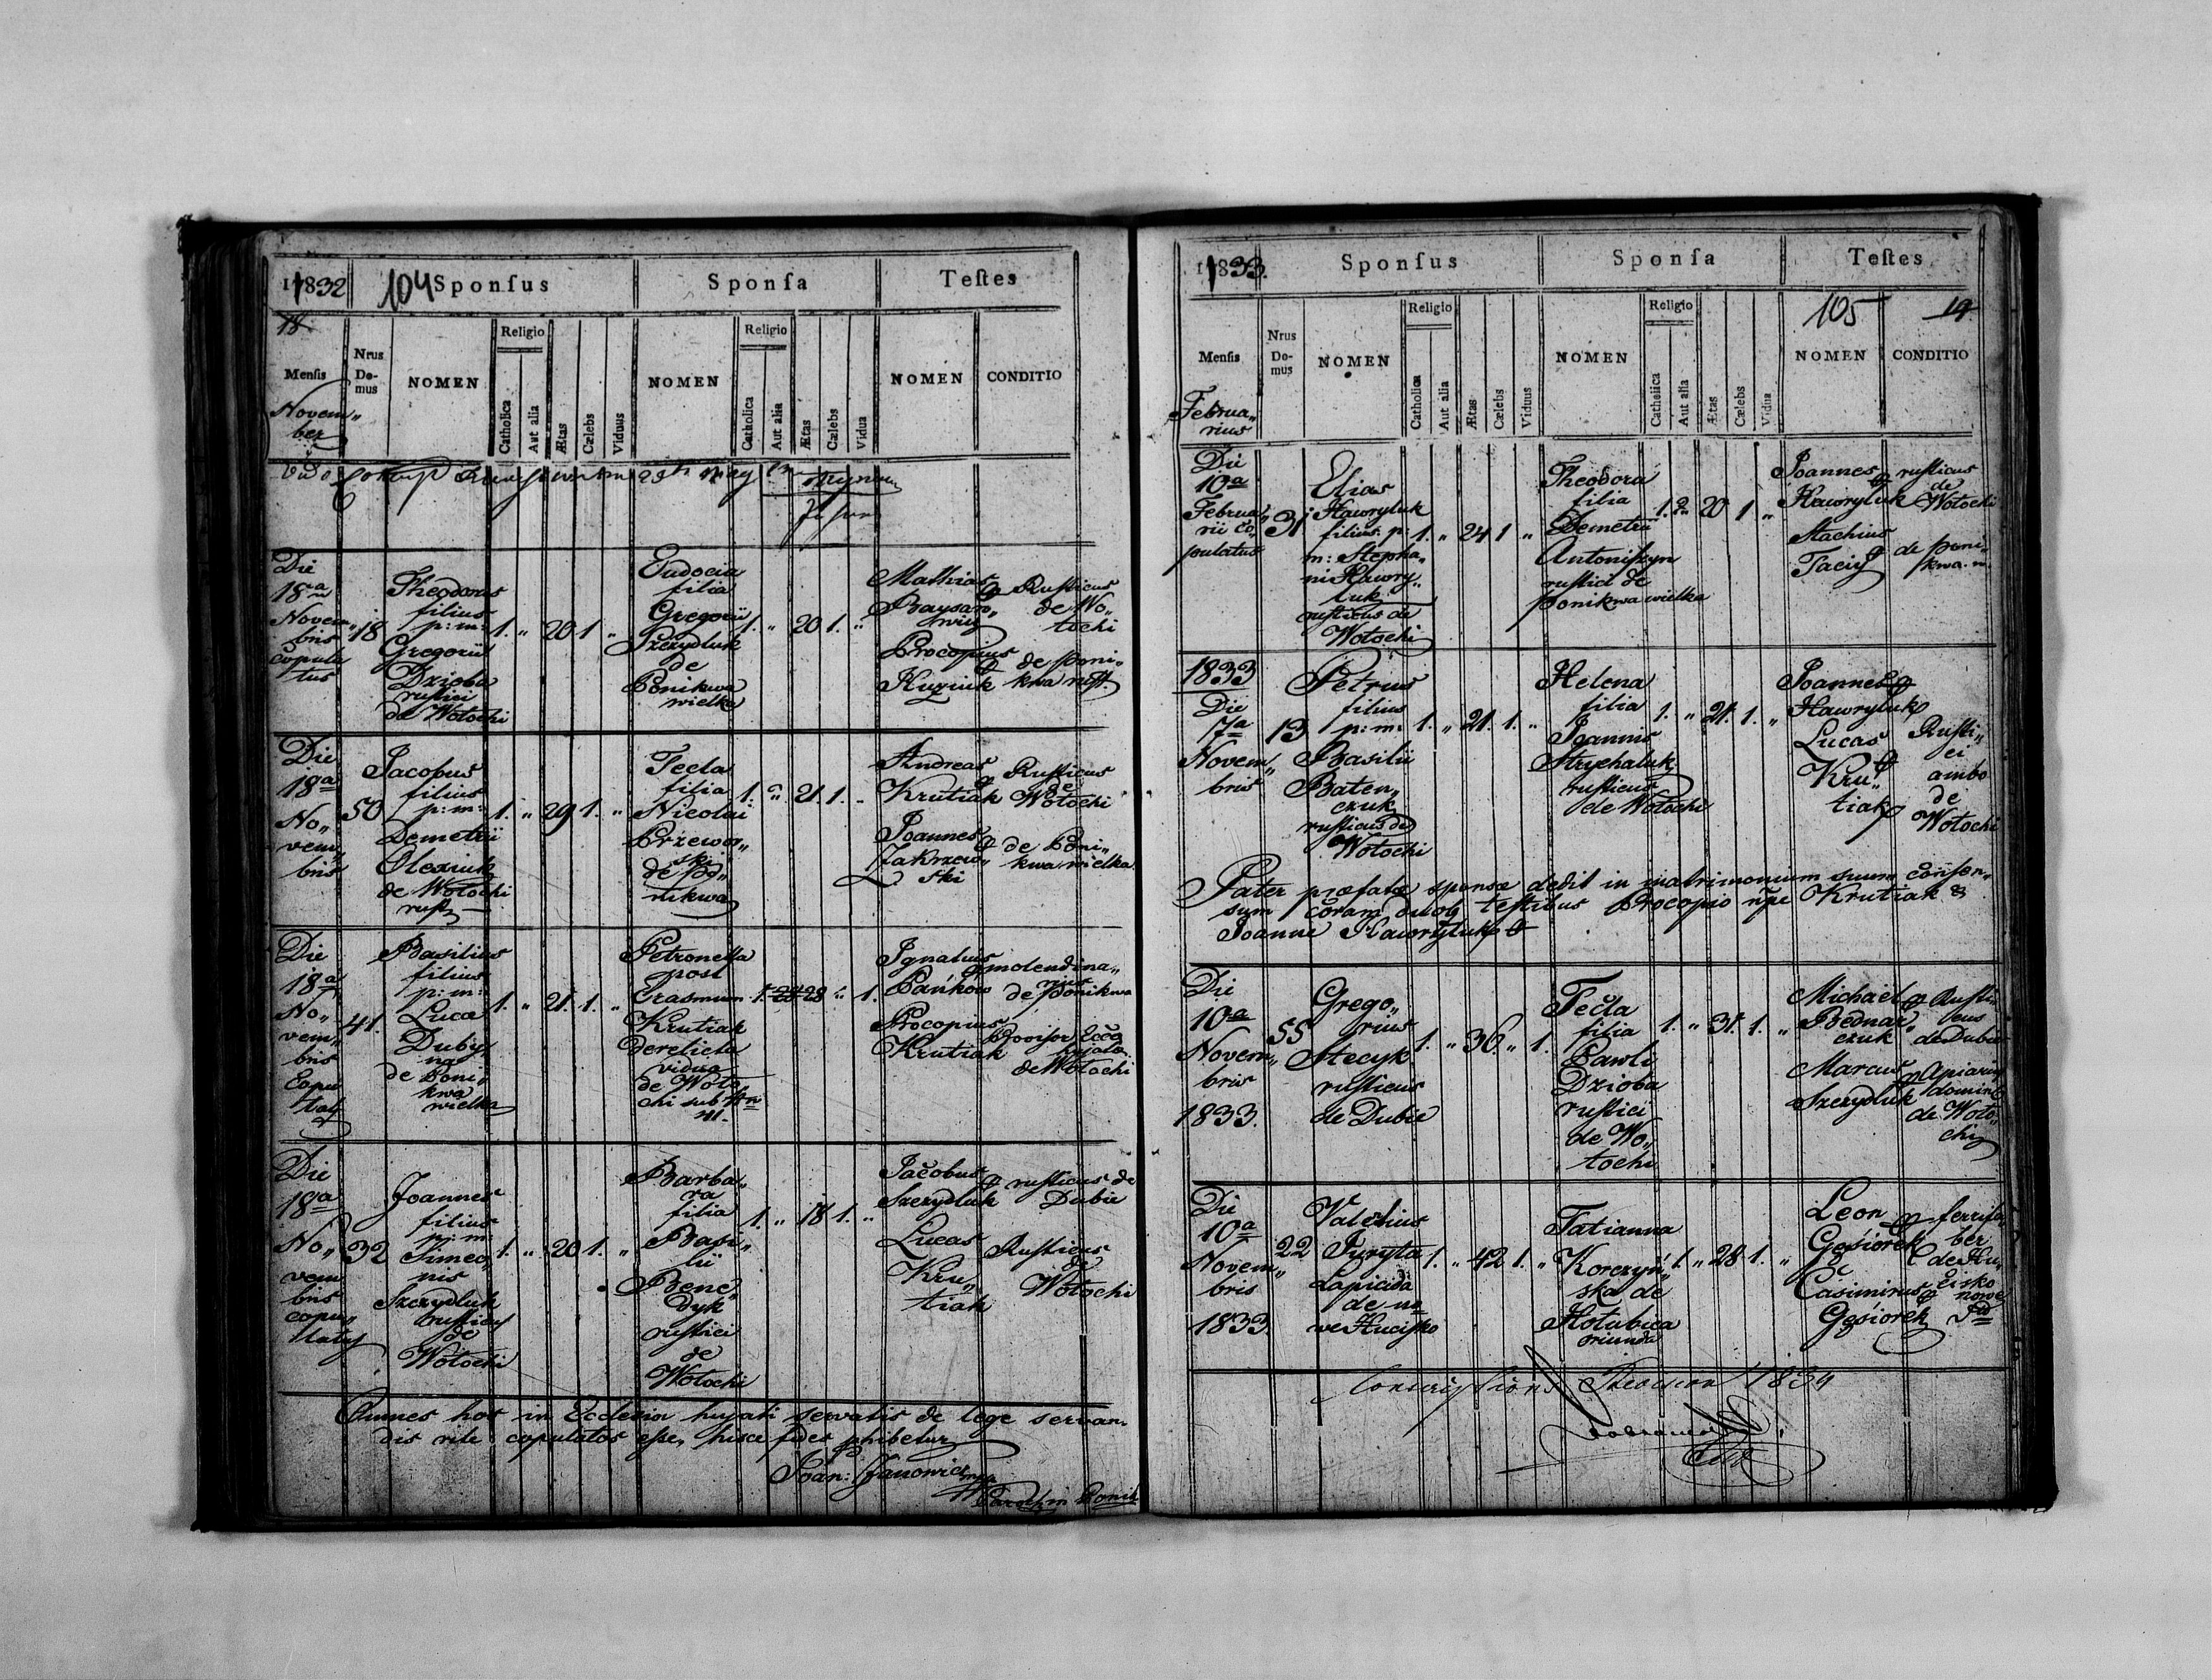 1832 104 Sponsus Sponsa Testes
18.
Mensis Nrus Domus NOMEN Religio Catholica Aut alia Ætas Cælebs Viduus NOMEN Religio Catholica Aut alia Ætas Cælebs Vidua NOMEN CONDITIO
Novem„
ber
Die
18a
Novem„
bris
copula
tus
18
Theodorus
filius
p: m:
Gregorii
Dzioba
rustici
de Wołochi
1. „ 20 1 „
Eudocia
filia
Gregorii
Szczydluk
de
Ponikwa
wielka
1. „ 20 1. „
Mathias
Rusticus
de Wo„
łochi
Procopius
Kuziuk
de Poni„
kwa rust.
Die
18a
No„
vem„
bris
50
Jacobus
filius
p: m:
Demetrii
Olexiuk
de Wołochi
rust
1. „ 29 1. „
Tecla
filia
Nicolai
Przewor„
ski
de Po„
nikwa
1. „ 21. 1. „
Andreas
Krutiak
Rusticus
de
Wołochi
Joannes
Zakrzew„
ski
de Poni„
kwa wielka
Die
18a
No„
vem„
bris
Copu
laty
41.
Basilius
filius
p: m:
Luca
Duby„
na
de Poni„
kwa
wielka
1. „ 21. 1. „
Petronella
post
Erasmum
Krutiak
derelicta
vidua
de Woło
chi sub Nro
41.
1. „ 28 „ 1.
Ignatius
Pańków
molendina„
rius
de Ponikwa
Procopius
Krutiak
Provisor Eccæ
hujatis
de Wołochi
Die
18a
No„
vem
bris
copu„
laty
32
Joannes
filius
p: m:
Simeo„
nis
Szczydluk
rustici
de
Wołochi
1. „ 20 1. „
Barba„
ra
filia
Basi„
lii
Bene„
dyk
rustici
de
Wołochi
1. „ 18 1. „
Jacobus
Szczydluk
rusticus de
Dubie
Lucas
Kru„
tiak
Rusticus
de
Wołochi
Omnes hos in Ecclesia hujati servatis de lege servan„
dis rite copulatos esse, hisce fides phibetur
Joan: Janowicz
1833. Sponsus Sponsa Testes
105 19
Mensis Nrus Domus NOMEN Religio Catholica Aut alia Ætas Cælebs Viduus NOMEN Religio Catholica Aut alia Ætas Cælebs Vidua NOMEN CONDITIO
Februa„
rius
Die
10a
Februa„
rii co„
pulatus
31
Elias
Hawryluk
filius p:
m: Stepha„
ni Hawry„
luk
rusticus de
Wołochi
1. „ 24 1 „
Theodora
filia
Demetrii
Antoniszyn
rustici de
Ponikwa wielka
1. „ 20 1 „
Joannes
Hawryluk
rusticus
de
Wołochi
Stachius
de Poni„
kwa. w.
1833
Die
7a
Novem„
bris
13
Petrus
filius
p: m:
Basilii
Baten„
czuk
rusticus de
Wołochi
1. „ 21. 1. „
Helena
filia
Joannis
Strychaluk
rusticus
de Wołochi
1. „ 21. 1. „
Joannes
Hawryluk
Lucas
Kru„
tiak
Rusti„
ci
ambo
de
Wołochi
Pater præfatæ sponsæ dedit in matrimonium suum consen„
sum coram duobq testibus Procopio npe Krutiak &
Joanne Hawryluk
Die
10a
Novem„
bris
1833.
55
Grego„
rius
Stecyk
rusticus
de Dubie
1. „ 36. „ 1.
Tecla
filia
Pawli
Dzioba
rustici
de Wo„
łochi
1. „ 31. 1. „
Michael
Bednar„
czuk
Rusti„
cus
de Dubie
Marcus
Szczydluk
Apiarius
domin
de Woło„
chi
Die
10a
Novem„
bris
1833.
22
Valerius
Juryta
Lapicida
de no
we Hucisko
1. „ 42 1. „
Tatianna
Korczyń„
ska de
Hołubica
oriunda
1. „ 28 1. „
Leon
Gąsiorek
ferrifa
ber
de Hu„
cisko
nowe
Casimirus
Gąsiorek
1834